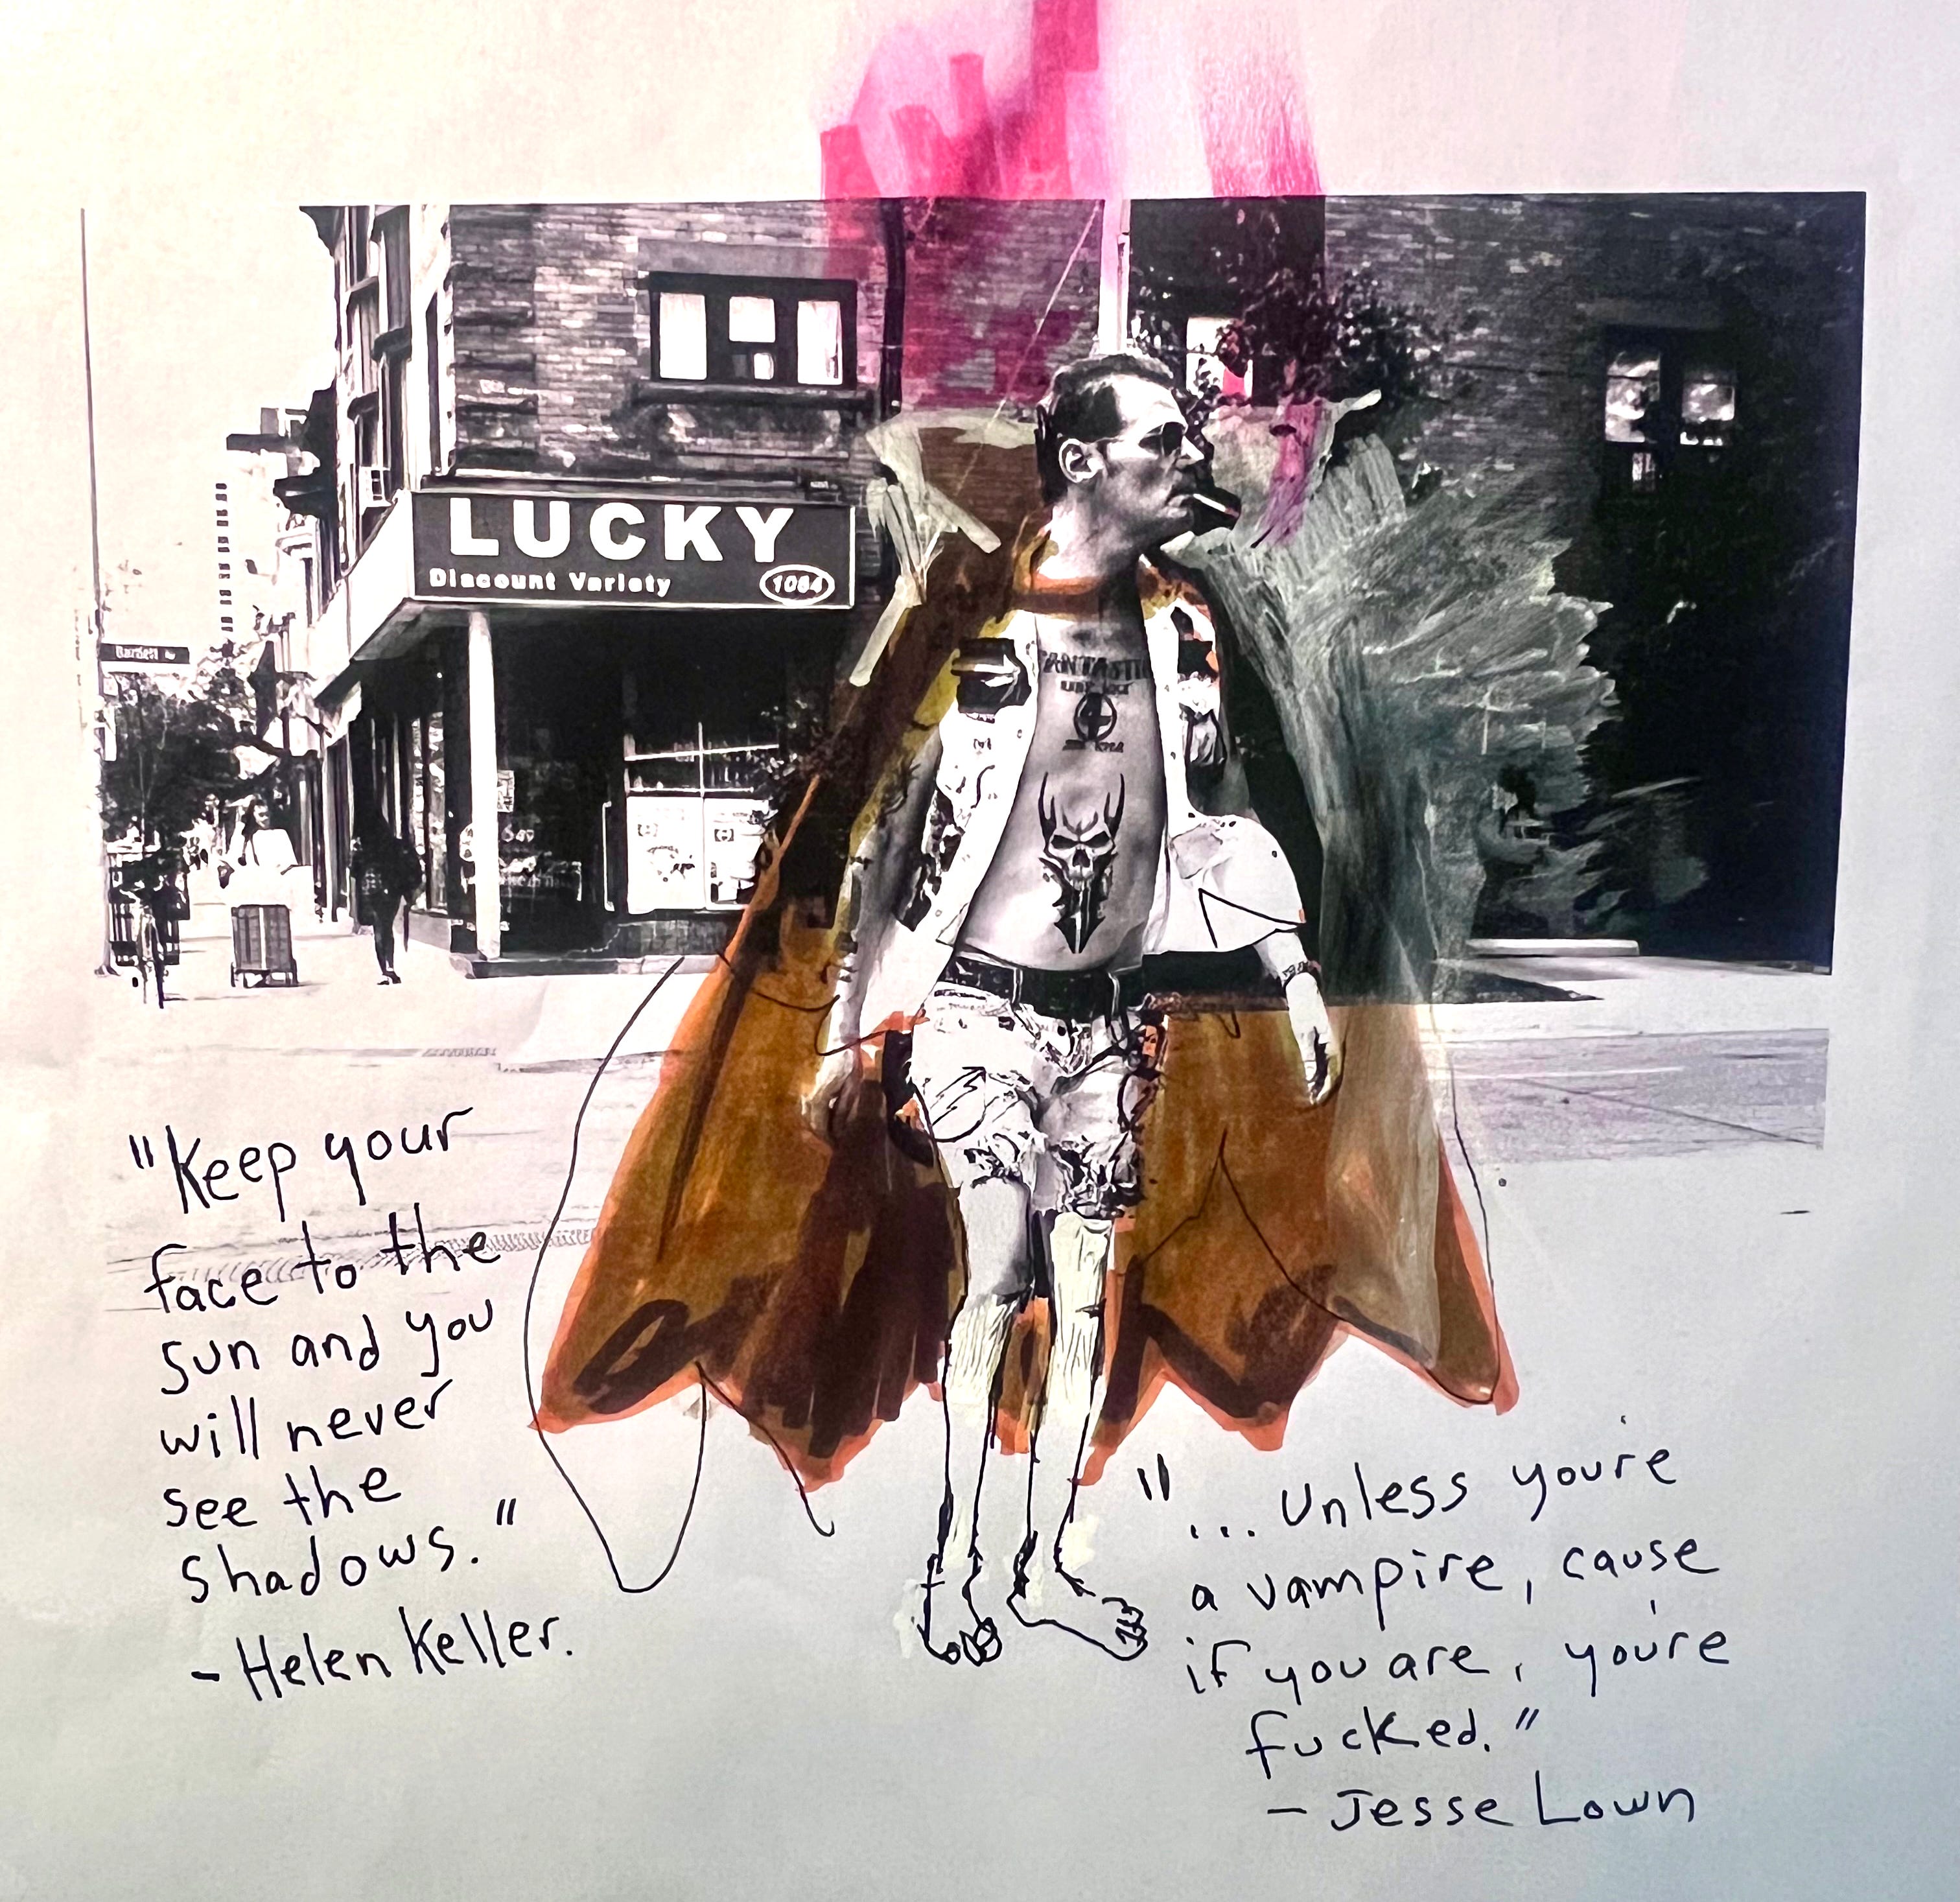 LUCKY
Discount Variety 1064
Bartlett Av
649
FANTASTIC
"Keep your
face to the
sun and you
will never
see the
shadows."
- Helen Keller.
"... Unless you're
a vampire, cause
if you are, you're
fucked."
- Jesse Lown